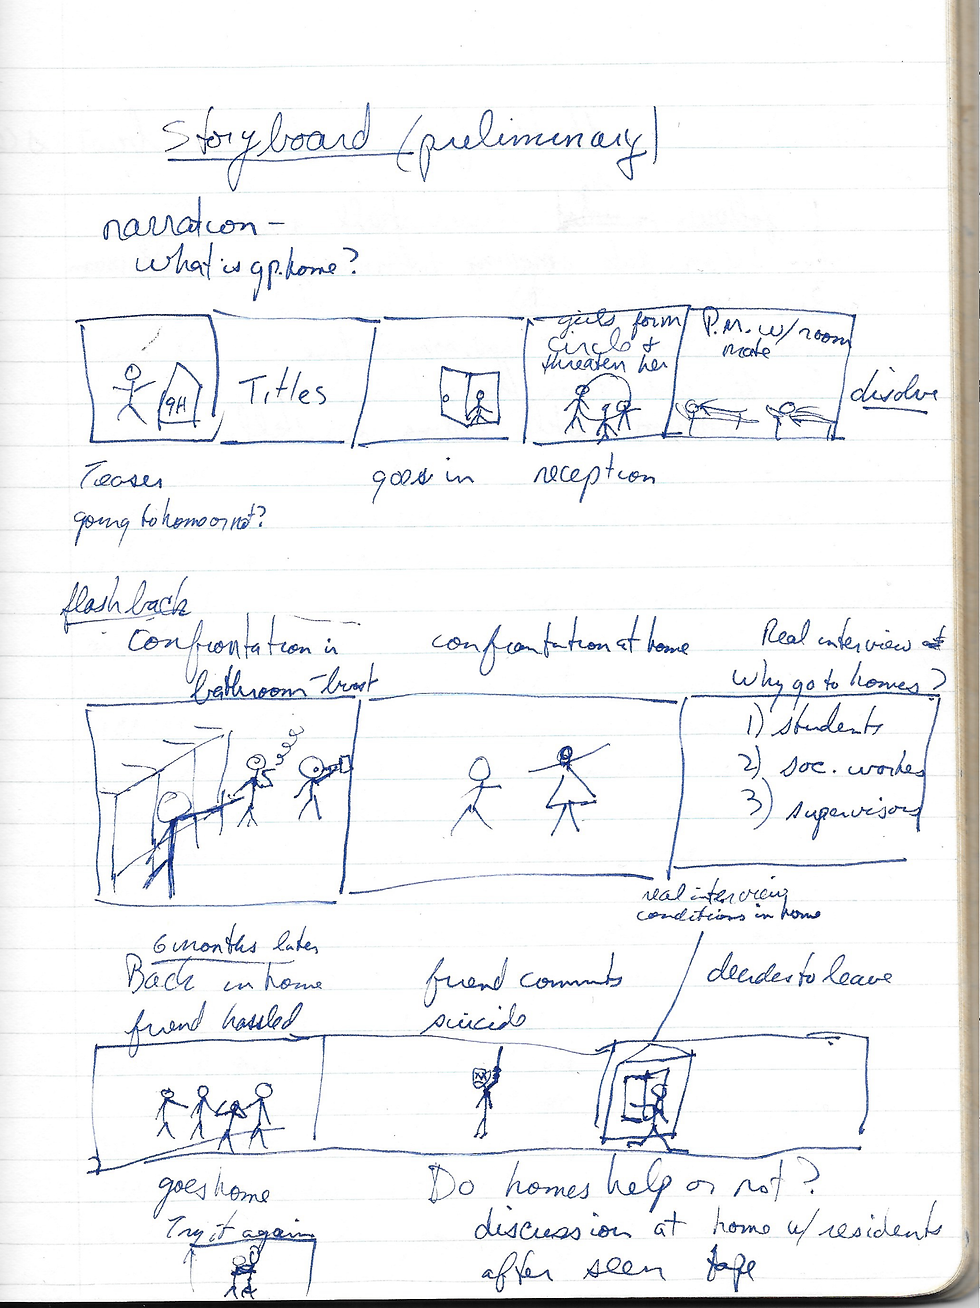 Storyboard (preliminary)
narration -
what is gp. home?
girls form
circle &
threaten her
P.M. w/ room
mate
GH
Titles
disolve
Teaser
goes in
reception
going to home or not?
flashback
Confrontation in
bathroom - bust
confrontation at home
Real interview
Why go to homes?
1) students
2) soc. worker
3) supervisors
real interview
conditions in home
6 months later
Back in home
friend hassled
friend commits
suicide
decides to leave
XX
goes home
Try it again
Do homes help or not?
discussion at home w/ residents
after seen tape